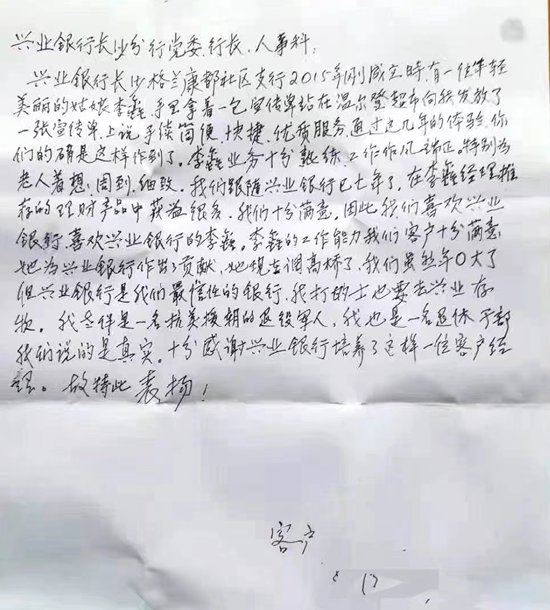 兴业银行长沙分行党委、行长、人事科:
兴业银行长沙格兰康都社区支行2015年刚成立时,有一位年轻
美丽的姑娘李鑫,手里拿着一包宣传单站在温尔登超市向我发放了
一张宣传单,上说手续简便、快捷、优质服务,通过这几年的体验,你
们的确是这样作到了。李鑫业务十分熟练,工作作风端正,特别为
老人着想,周到、细致。我们跟随兴业银行已七年了,在李鑫经理推
荐的理财产品中获益很多,我们十分满意,因此我们喜欢兴业
银行,喜欢兴业银行的李鑫。李鑫的工作能力我们客户十分满意
她为兴业银行作出了贡献,她现在调高桥了,我们虽然年O大了
但兴业银行是我们最信任的银行,我打的士也要去兴业存
钱。我老伴是一名抗美援朝的退役军人,我也是一名退休干部
我们说的是真实。十分感谢兴业银行培养了这样一位客户经
理。故特此表扬!
客户